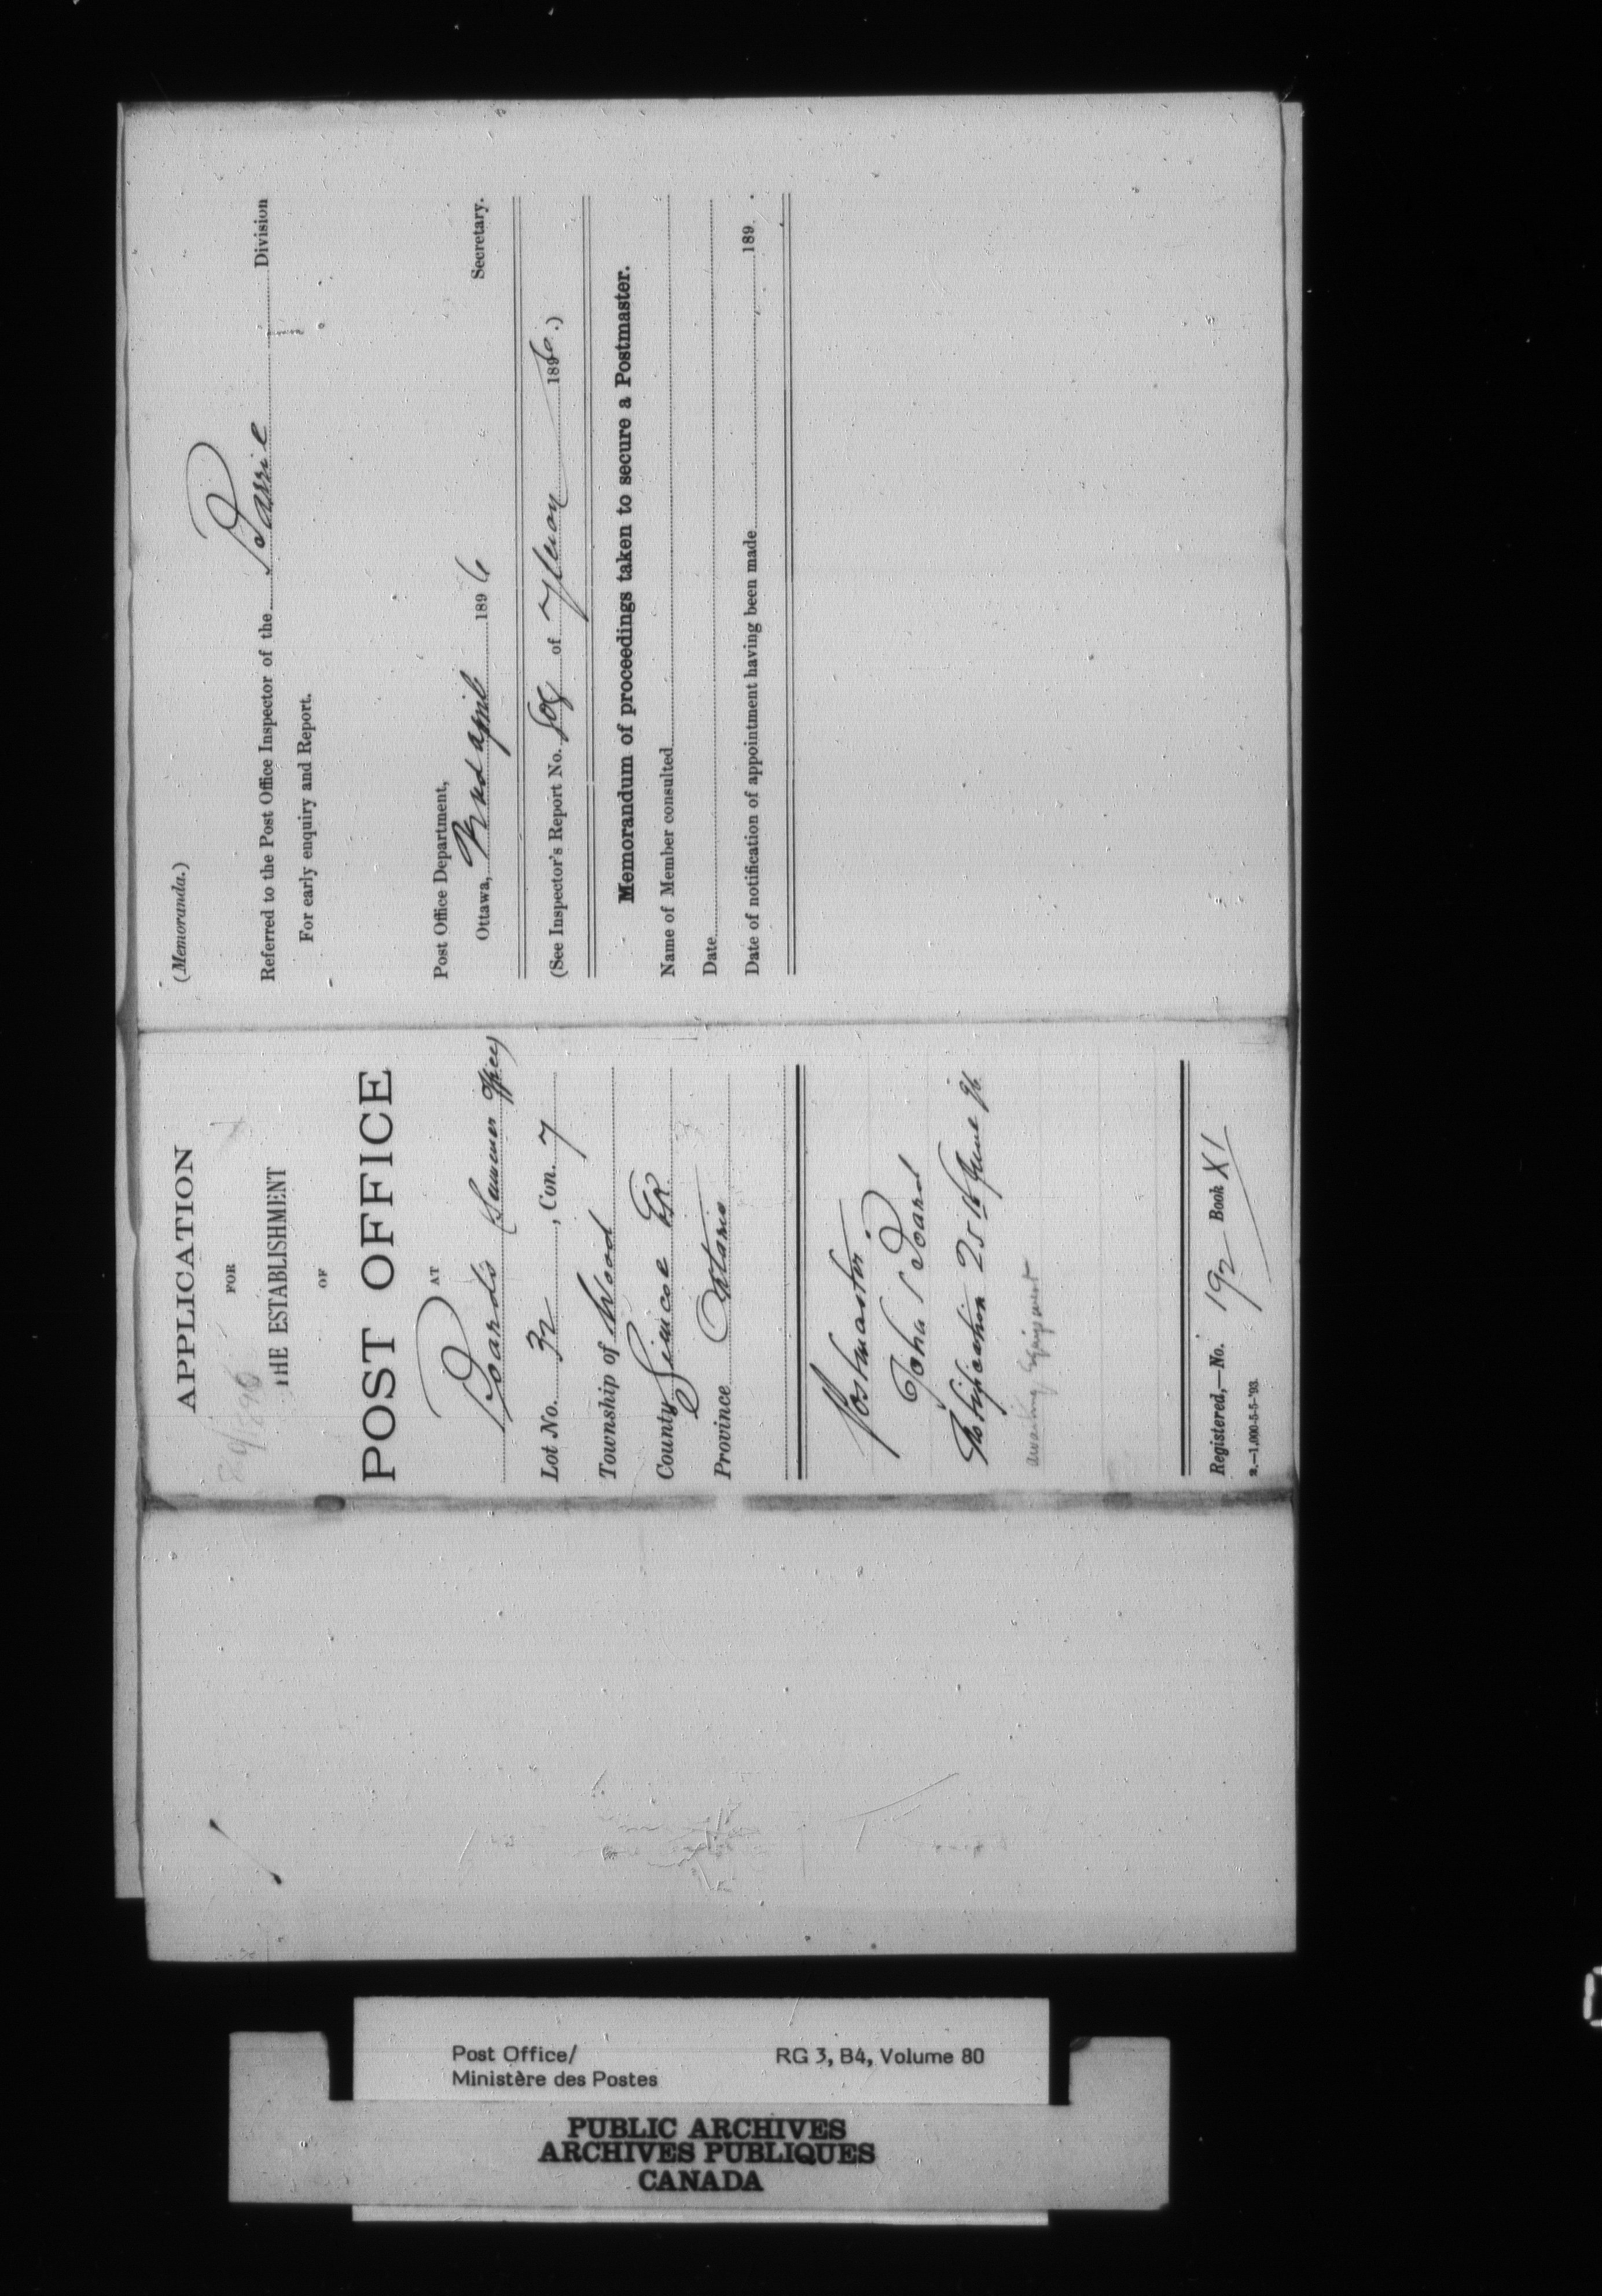 (Memoranda.)
Referred to the Post Office Inspector of the Barrie Division
For early enquiry and Report.
Post Office Department,
Ottawa, 22nd April 1896
Secretary.
(See Inspector's Report No. of 1896.)
Memorandum of proceedings taken to secure a Postmaster.
Name of Member consulted
Date
Date of notification of appointment having been made 189 .
APPLICATION
FOR
THE ESTABLISHMENT
OF
POST OFFICE
AT
(Summer Office)
Lot No. 32, Con. 7
Township of Wood
County Simcoe ER
Province Ontario
Postmaster.
John
Notification 25th June 96
awaiting Equipment
Registered,—No. 192 Book XI
2.—1,000-5-5-'93.
Post Office/
Ministère des Postes
RG 3, B4, Volume 80
PUBLIC ARCHIVES
ARCHIVES PUBLIQUES
CANADA